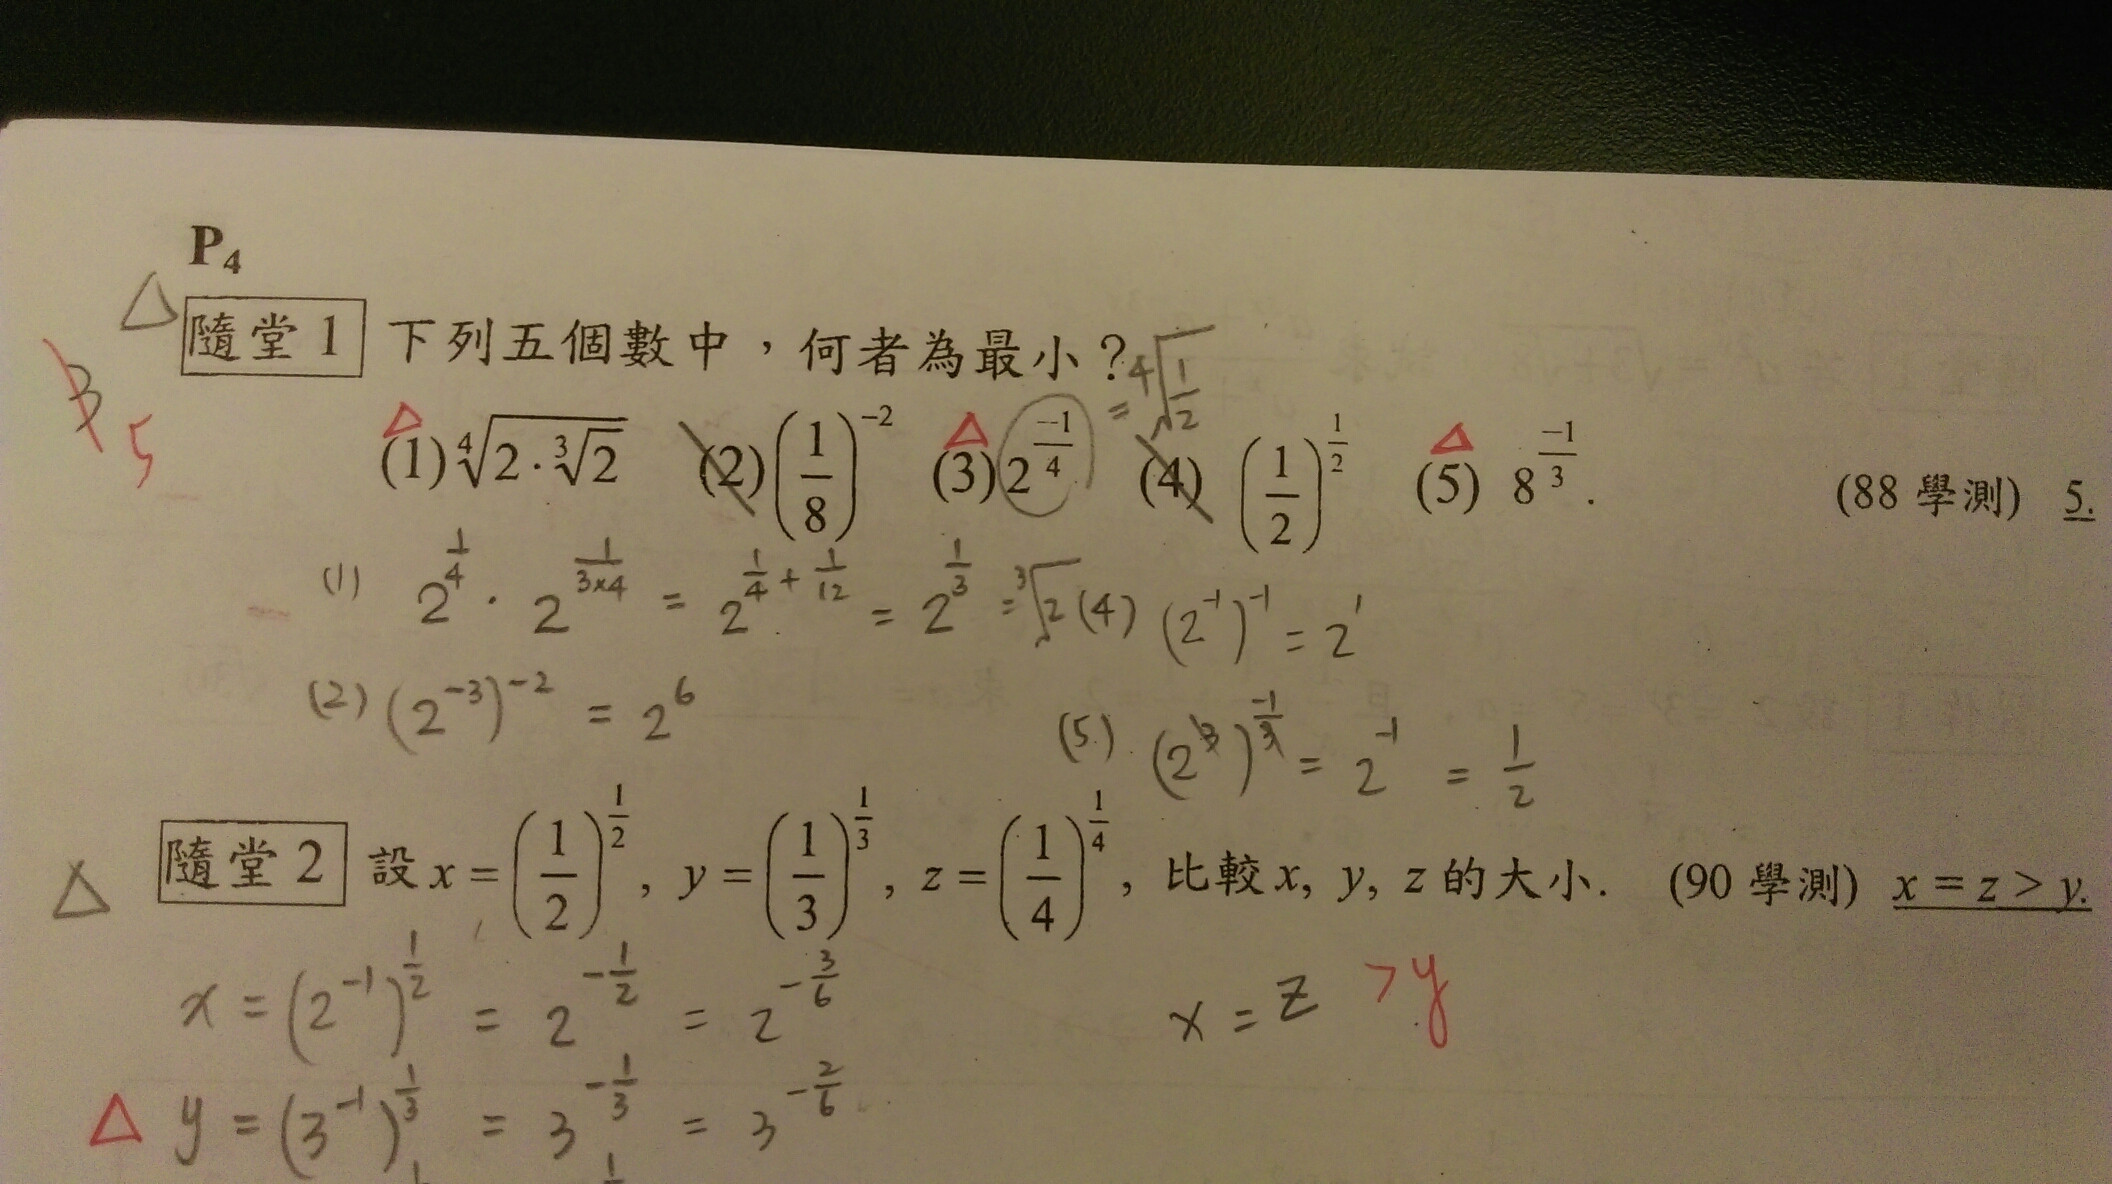 P₄
△ 隨堂 1 下列五個數中，何者為最小？ = ⁴√(1/2)
3 5
(1) ⁴√(2·³√2) (2) (1/8)^(-2) (3) 2^(-1/4) (4) (1/2)^(1/2) (5) 8^(-1/3). (88 學測) 5.
(1) 2^(1/4) · 2^(1/(3×4)) = 2^(1/4 + 1/12) = 2^(1/3) = ³√2 (4) (2^-1)^-1 = 2^1
(2) (2^-3)^-2 = 2^6 (5.) (2^3)^(-1/3) = 2^-1 = 1/2
△ 隨堂 2 設 x = (1/2)^(1/2), y = (1/3)^(1/3), z = (1/4)^(1/4), 比較 x, y, z 的大小. (90 學測) x = z > y.
x = (2^-1)^(1/2) = 2^(-1/2) = 2^(-3/6) x = z > y
△ y = (3^-1)^(1/3) = 3^(-1/3) = 3^(-2/6)